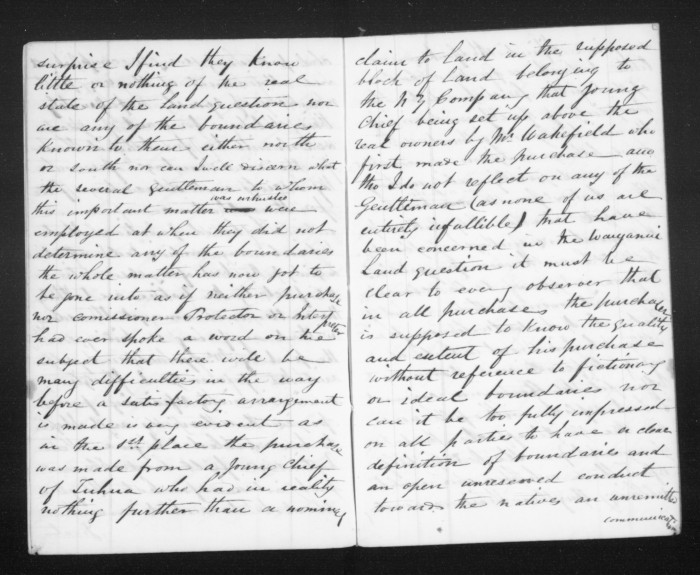 surprise I find they know
little or nothing of the real
state of the Land question nor
are any of the boundaries
known to them either north
or South nor can I well discern what
the several gentleman to whom
this important matter was intrusted were
employed at when they did not
determine any of the boundaries
the whole matter has now got to
be gone into as if neither purchase
nor comissioner Protector or Interpreter
had ever spoke a word on the
subject that there will be
many difficulties in the way
before a satisfactory arrangement
is made is very evident as
in the 1st place the purchase
was made from a young Chief
of Tuhua who had in reality
nothing further than a nominey
claim to Land in the supposed
block of Land belonging to
the NZ Company that young
Chief being set up above the
real owners by Mr Wakefield who
first made the purchase and
tho I do not reflect on any of the
Gentleman (as none of us are
entirely infallible) that have
been concerned in the Wanganui
Land question it must be
clear to every observer that
in all purchases the purchaser
is supposed to know the quality
and extent of his purchase
without reference to fictionary
or ideal boundaries nor
can it be too fully impressed
on all parties to have a clear
definition of boundaries and
an open unreserved conduct
towards the natives an unremitted
communication